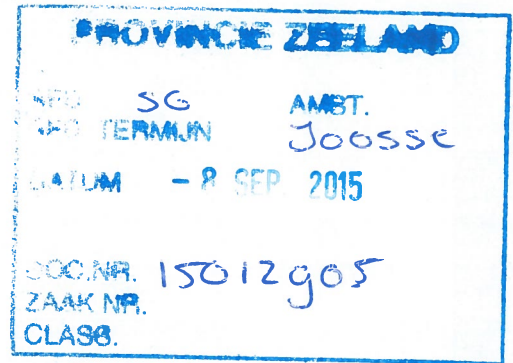 PROVINCIE ZEELAND
AFD. SG AMBT.
AFD TERMIJN Joosse
DATUM - 8 SEP. 2015
DOC.NR. 15012905
ZAAK NR.
CLASS.